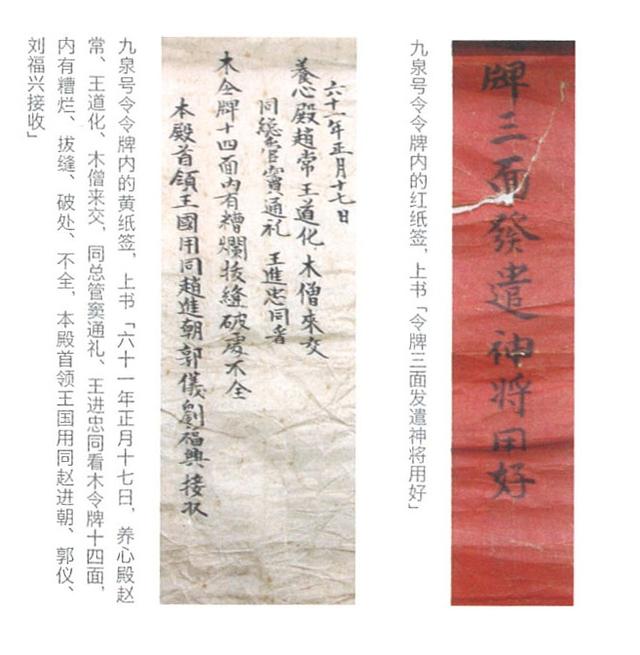 牌三面發遣神將用好
九泉号令令牌内的红纸签，上书「令牌三面发遣神将用好」
六十一年正月十七日
養心殿趙常王道化木僧來交
同總管竇通礼 王進忠同看
木令牌十四面内有糟爛拔縫破處不全
本殿首領王國用同趙進朝郭儀劉福興接収
九泉号令令牌内的黄纸签，上书「六十一年正月十七日，养心殿赵
常、王道化、木僧来交，同总管窦通礼、王进忠同看木令牌十四面，
内有糟烂、拔缝、破处、不全，本殿首领王国用同赵进朝、郭仪、
刘福兴接收」